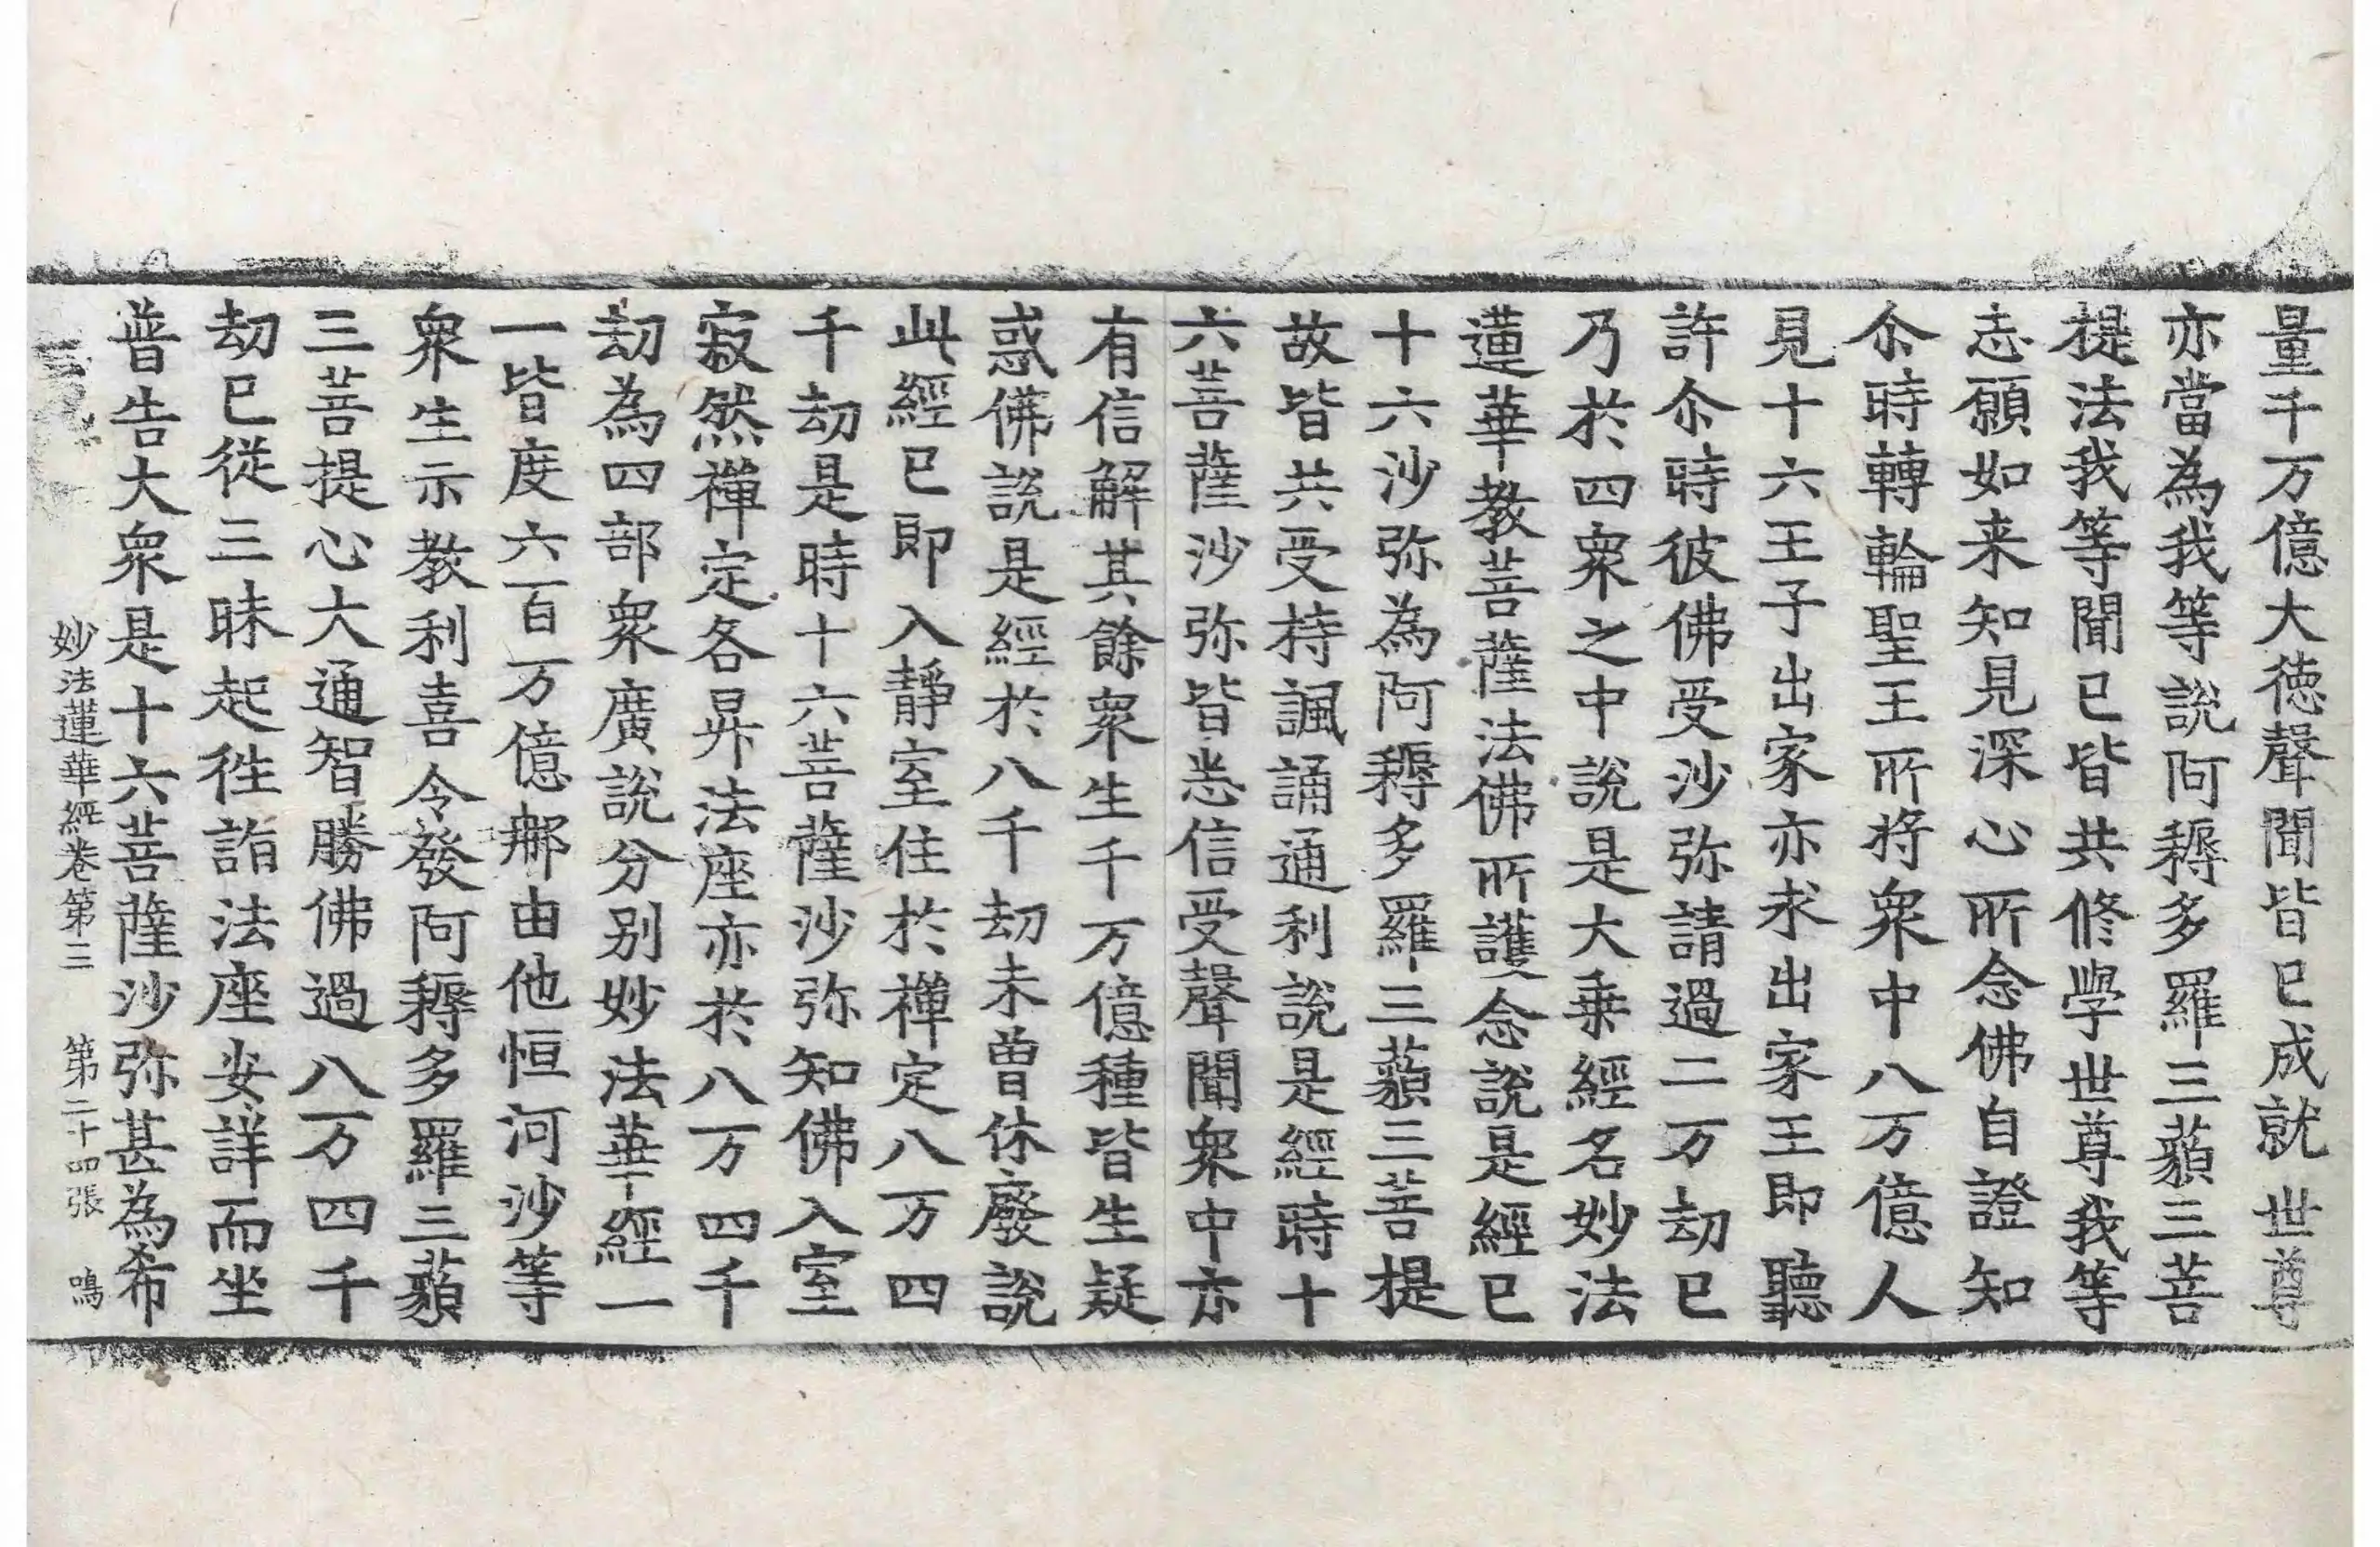 量千万億大徳聲聞皆已成就世尊
亦當為我等說阿耨多羅三藐三菩
提法我等聞已皆共修學世尊我等
志願如来知見深心所念佛自證知
尒時轉輪聖王所将衆中八万億人
見十六王子出家亦求出家王即聽
許尒時彼佛受沙弥請過二万劫已
乃於四衆之中說是大乗經名妙法
蓮華教菩薩法佛所護念說是經已
十六沙弥為阿耨多羅三藐三菩提
故皆共受持諷誦通利說是經時十
六菩薩沙弥皆悉信受聲聞衆中亦
有信解其餘衆生千万億種皆生疑
惑佛說是經於八千劫未曽休廢說
此經已即入靜室住於禪定八万四
千劫是時十六菩薩沙弥知佛入室
寂然禪定各昇法座亦於八万四千
劫為四部衆廣說分别妙法華經一
一皆度六百万億那由他恒河沙等
衆生示教利喜令發阿耨多羅三藐
三菩提心大通智勝佛過八万四千
劫已從三昧起徃詣法座安詳而坐
普告大衆是十六菩薩沙弥甚為希
妙法蓮華經卷第三 第二十四張 鳴